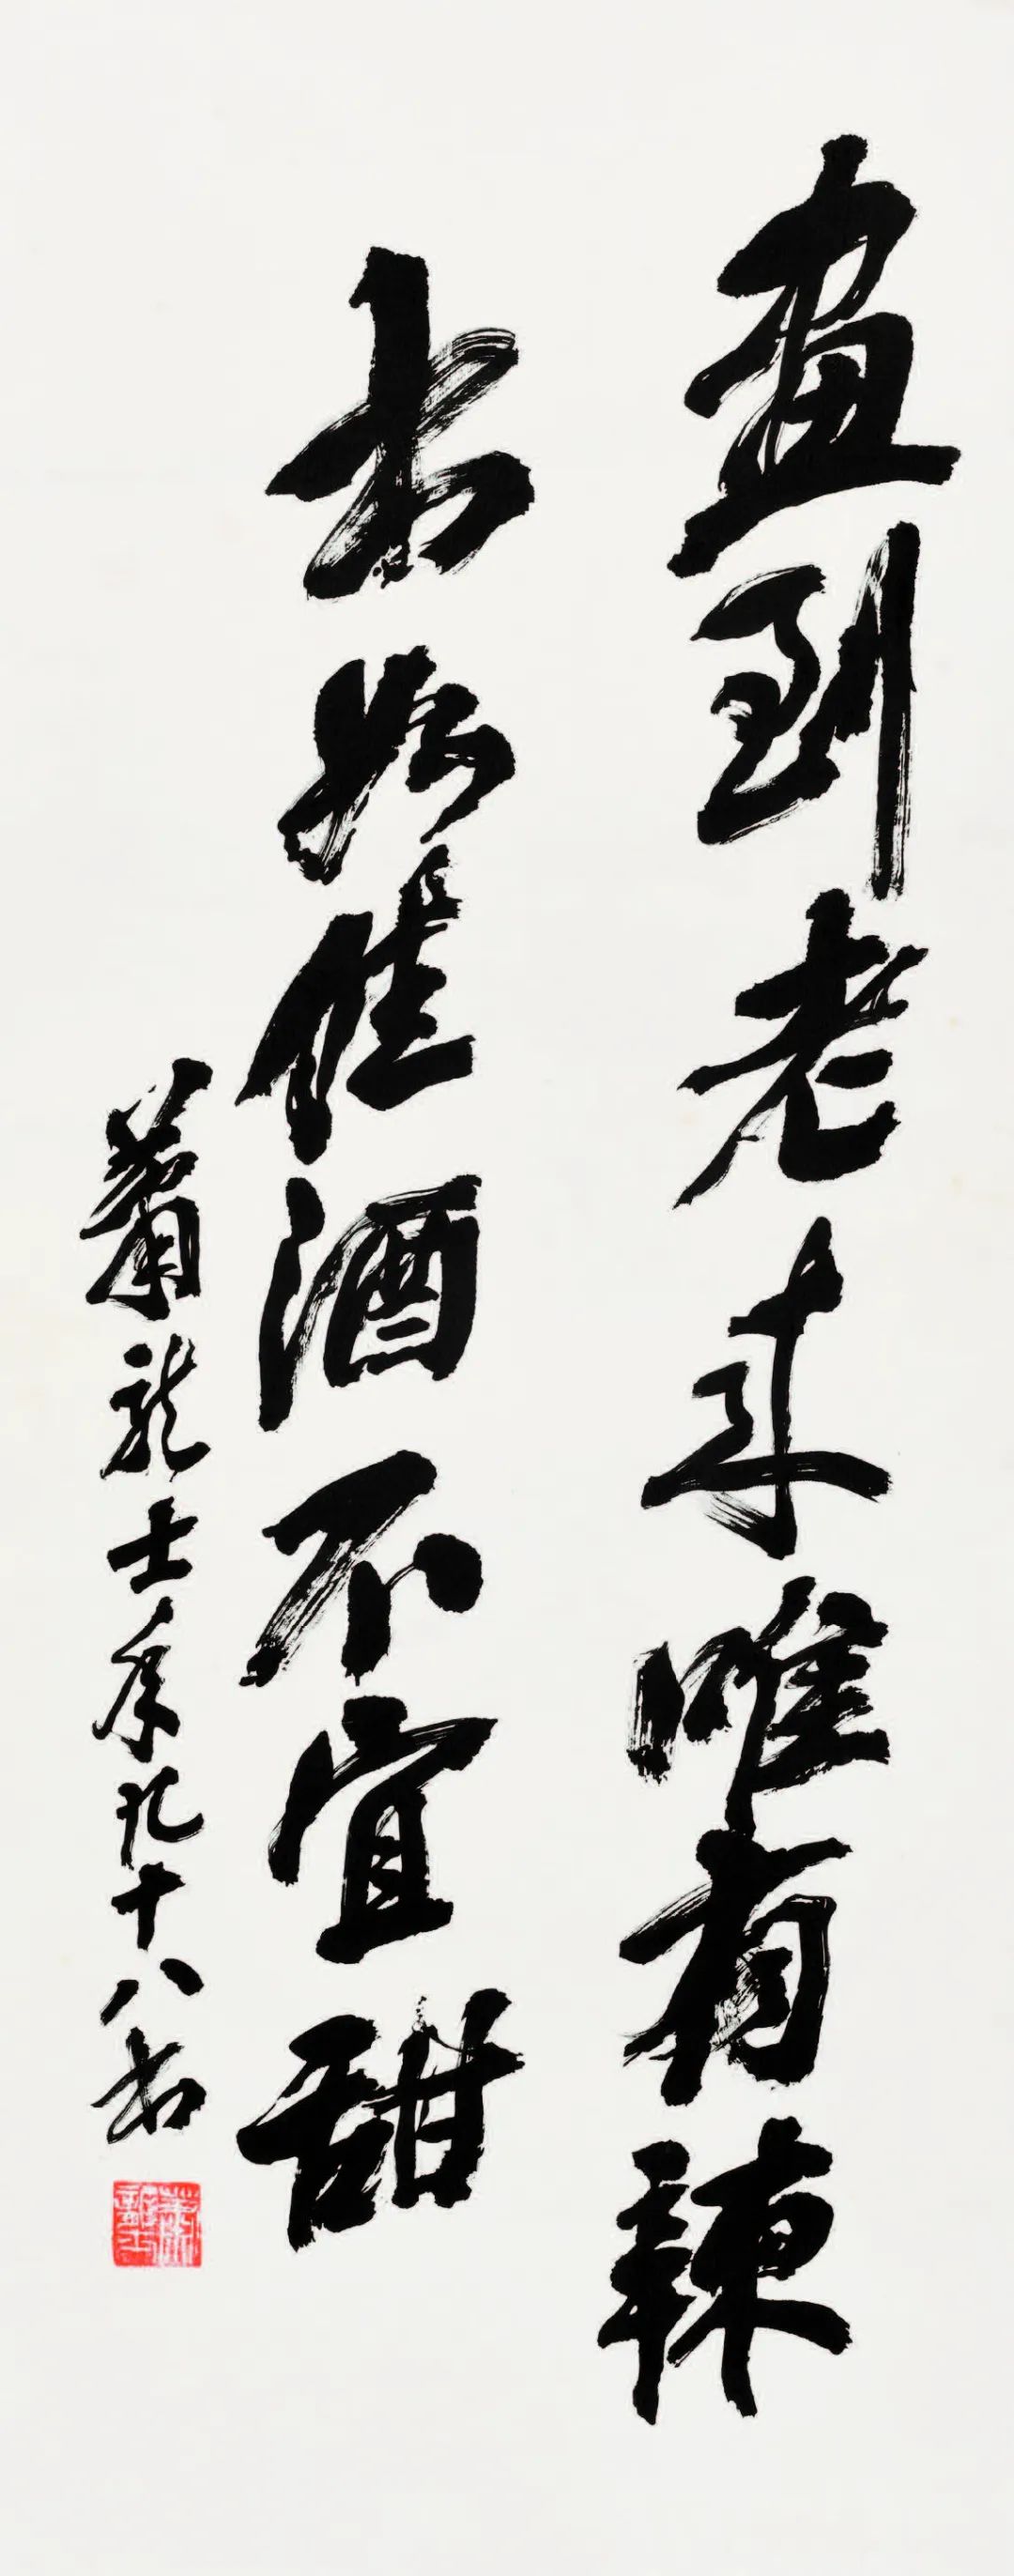 画到老来唯有辣
书如佳酒不宜甜
萧龙士年九十八书
萧龙士